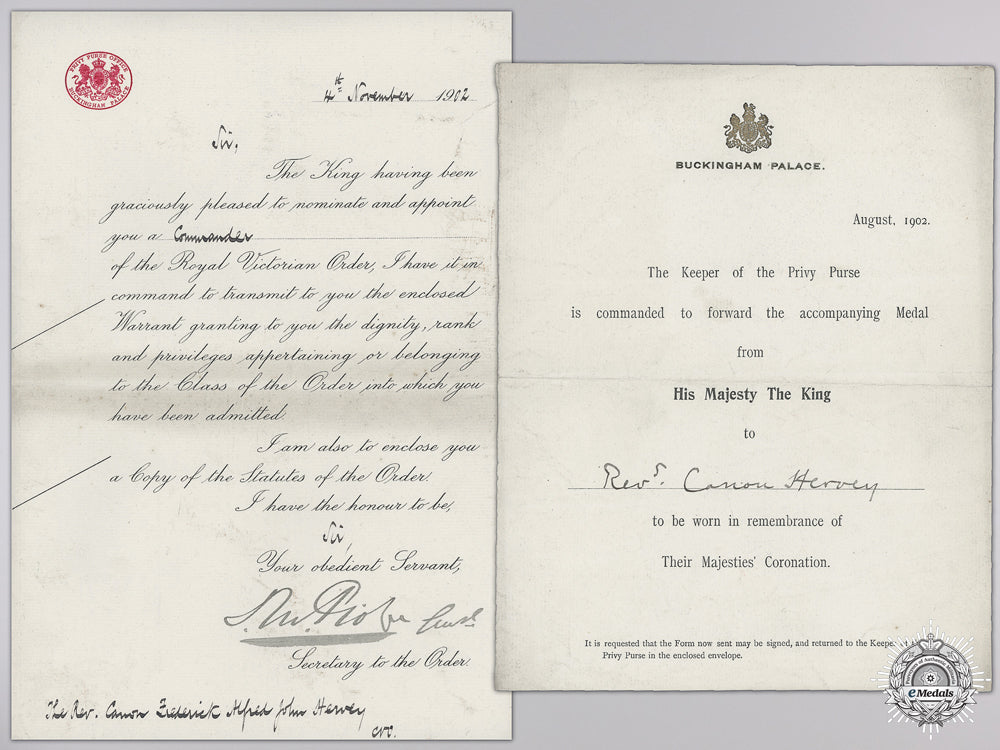 PRIVY PURSE OFFICE
BUCKINGHAM PALACE
4th November 1902
Sir,
The King having been
graciously pleased to nominate and appoint
you a Commander
of the Royal Victorian Order, I have it in
command to transmit to you the enclosed
Warrant granting to you the dignity, rank
and privileges appertaining or belonging
to the Class of the Order into which you
have been admitted
I am also to enclose you
a Copy of the Statutes of the Order.
I have the honour to be,
Sir,
Your obedient Servant,
Secretary to the Order.
The Rev. Canon Frederick Alfred John Hervey
CVO.
BUCKINGHAM PALACE.
August, 1902.
The Keeper of the Privy Purse
is commanded to forward the accompanying Medal
from
His Majesty The King
to
Revd. Canon Hervey
to be worn in remembrance of
Their Majesties' Coronation.
It is requested that the Form now sent may be signed, and returned to the Keeper
Privy Purse in the enclosed envelope.
eMedals